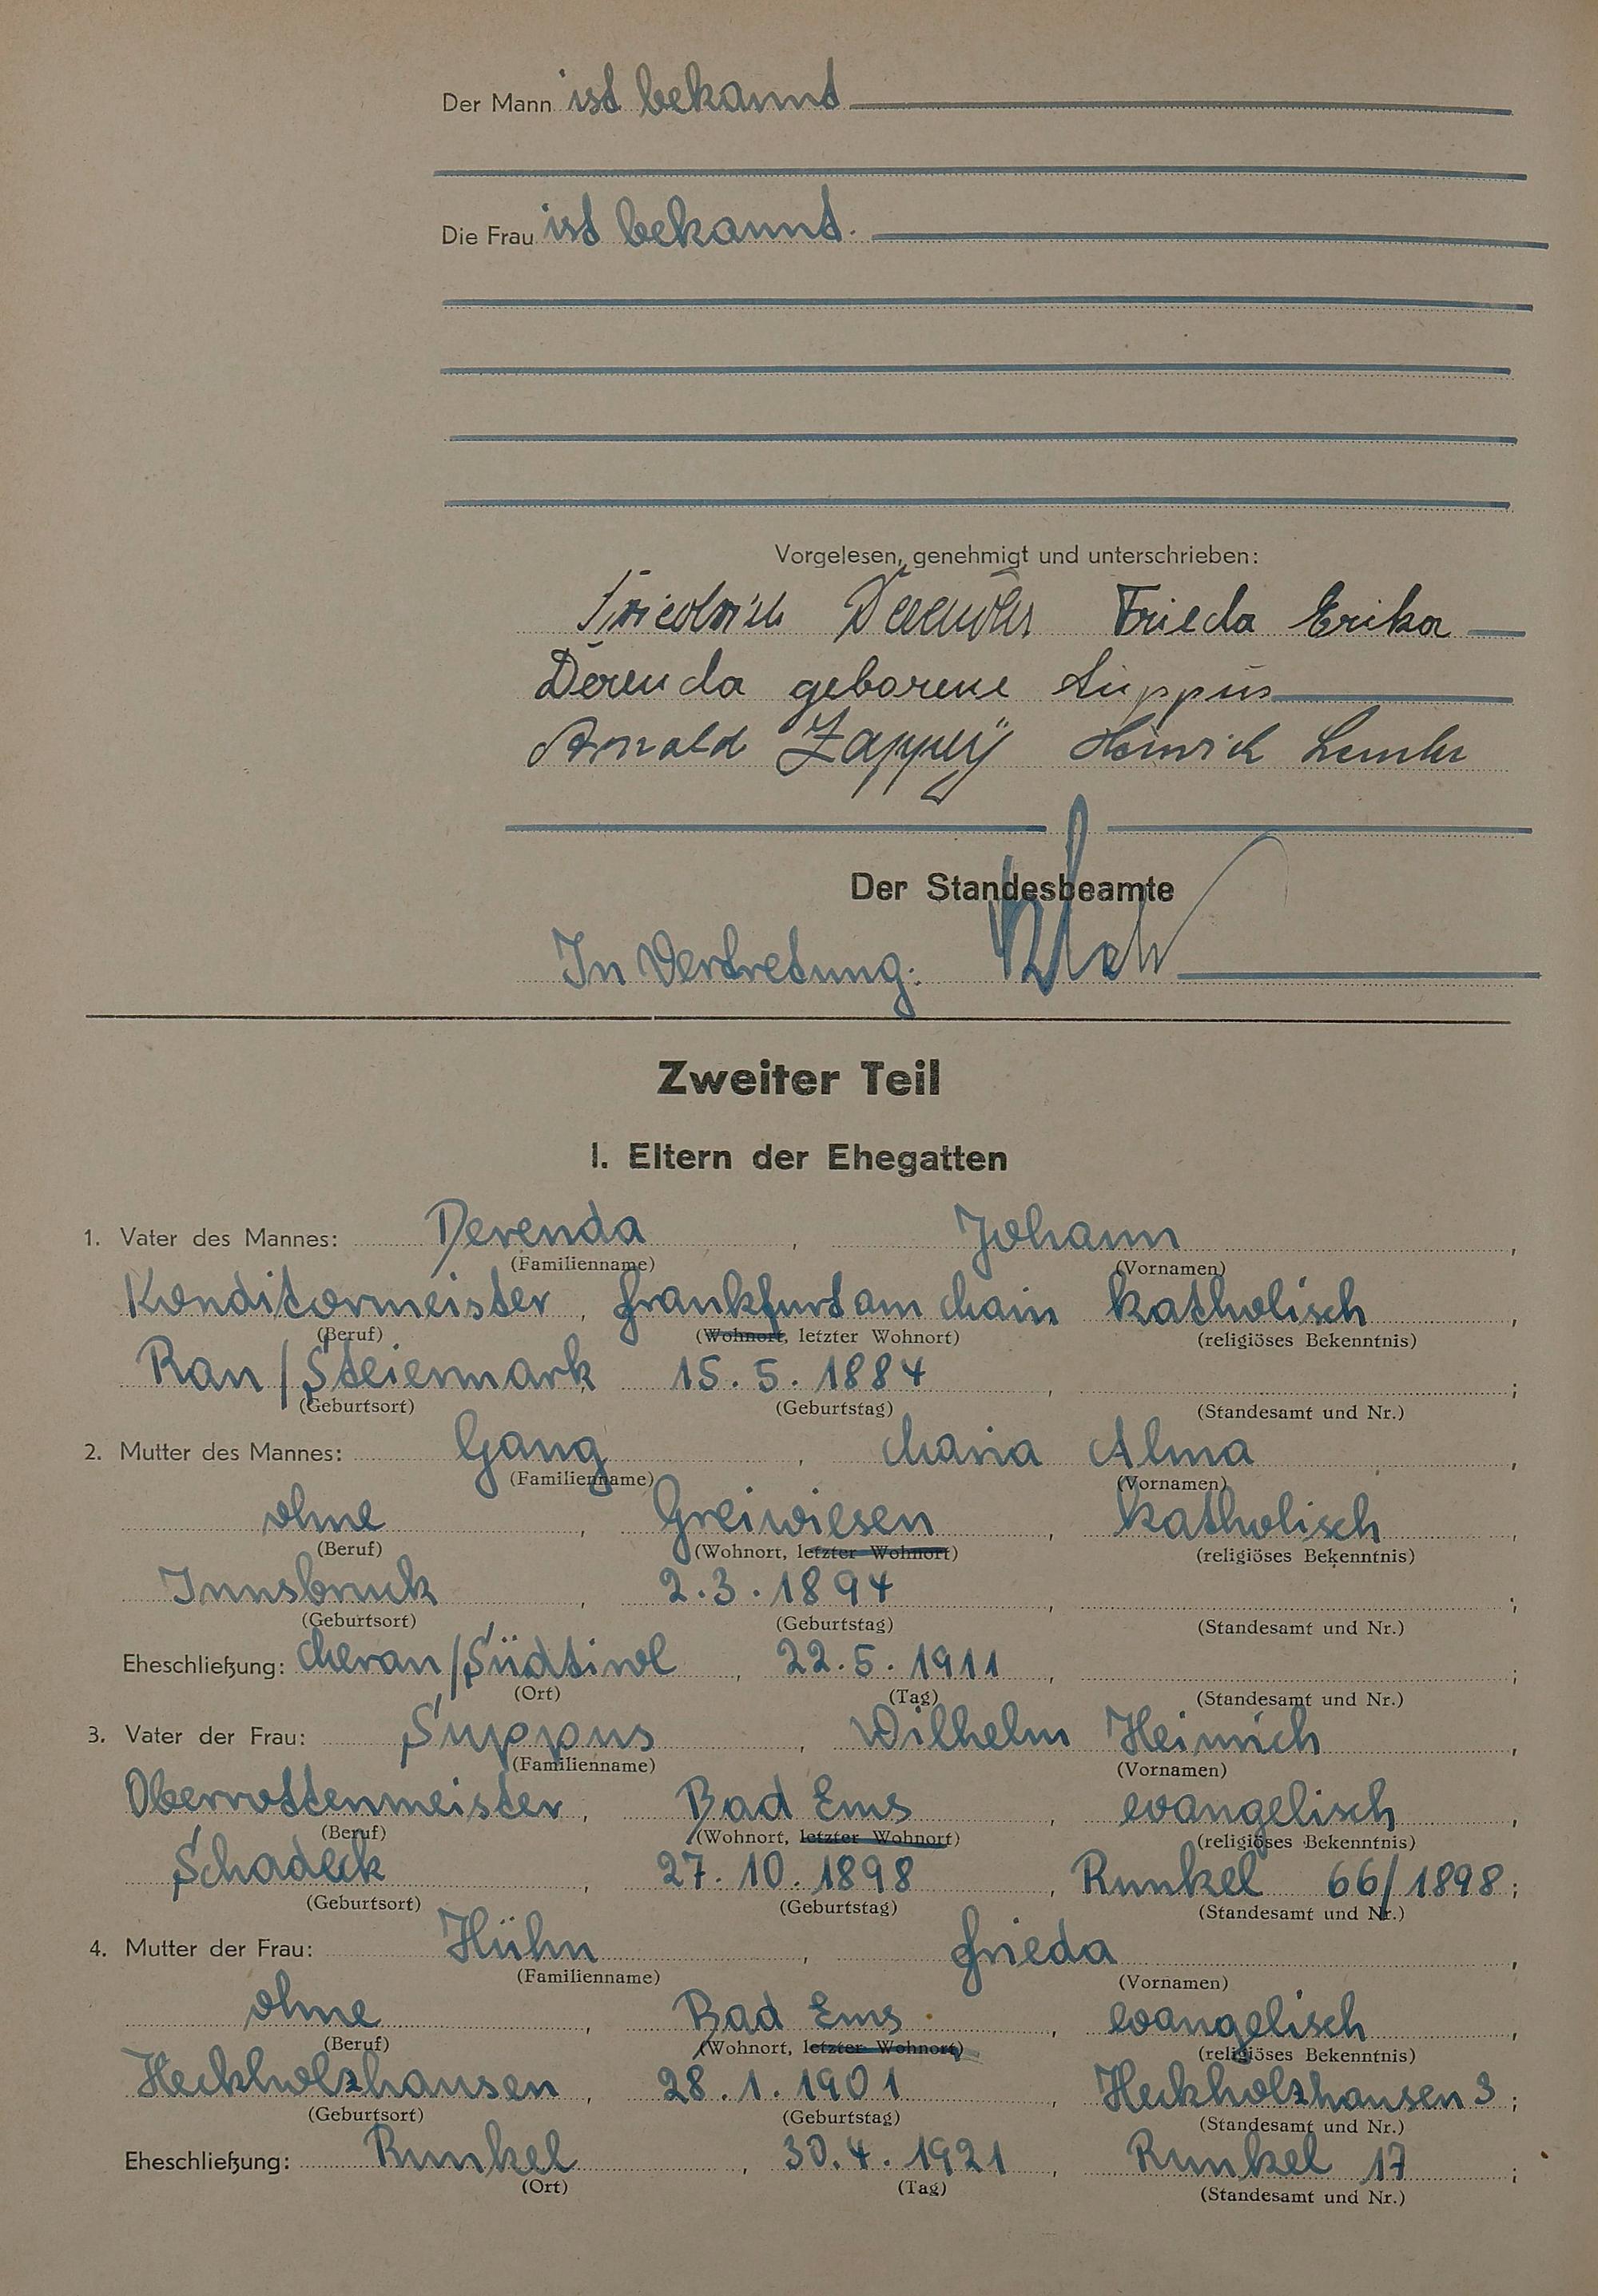 Der Mann ist bekannt
Die Frau ist bekannt.
Vorgelesen, genehmigt und unterschrieben:
Friedrich Derenda Frieda Erika
Derenda geborene Suppus
Arnold Heinrich
Der Standesbeamte
In Vertretung:
Zweiter Teil
I. Eltern der Ehegatten
1. Vater des Mannes: Derenda, Johann,
(Familienname) (Vornamen)
Konditormeister, Frankfurt am Main katholisch,
(Beruf) (Wohnort, letzter Wohnort) (religiöses Bekenntnis)
Ran/Steiermark 15.5.1884, ;
(Geburtsort) (Geburtstag) (Standesamt und Nr.)
2. Mutter des Mannes: Gang, Maria Alma,
(Familienname) (Vornamen)
ohne, Greiwiesen, katholisch,
(Beruf) (Wohnort, letzter Wohnort) (religiöses Bekenntnis)
Innsbruck, 2.3.1894, ;
(Geburtsort) (Geburtstag) (Standesamt und Nr.)
Eheschließung: Meran/Südtirol, 22.5.1911, ;
(Ort) (Tag) (Standesamt und Nr.)
3. Vater der Frau: Suppus, Wilhelm Heinrich,
(Familienname) (Vornamen)
Oberrottenmeister, Bad Ems, evangelisch,
(Beruf) (Wohnort, letzter Wohnort) (religiöses Bekenntnis)
Schadeck, 27.10.1898, Runkel 66/1898;
(Geburtsort) (Geburtstag) (Standesamt und Nr.)
4. Mutter der Frau: Hühn, Frieda,
(Familienname) (Vornamen)
ohne, Bad Ems, evangelisch,
(Beruf) (Wohnort, letzter Wohnort) (religiöses Bekenntnis)
Heckholzhausen, 28.1.1901, Heckholzhausen 3;
(Geburtsort) (Geburtstag) (Standesamt und Nr.)
Eheschließung: Runkel, 30.4.1921, Runkel 17;
(Ort) (Tag) (Standesamt und Nr.)